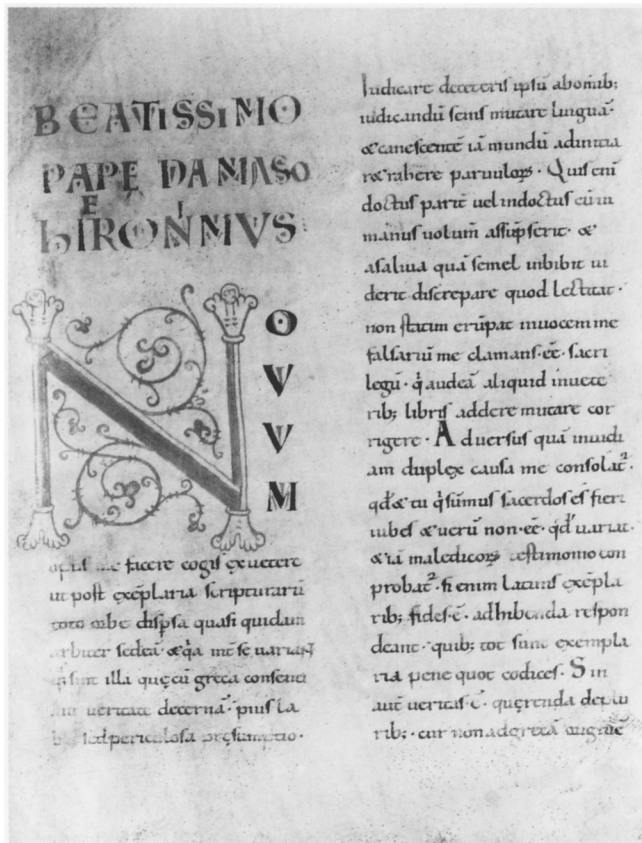 BEATISSIMO
PAPE DAMASO
E I
hIRONMVS
NOVVM
opus me facere cogis ex uetere
ut post exēplaria scripturarū
toto orbe dispsa quasi quidam
arbiter sedeā· & q̃a int̃ se uariant
sint illa quęcū greca consenti
ueritate decernā· pius la
bor sed periculosa pręsumptio·
Iudicare deceteris ipsū abomīb;
iudicandū senis mutare linguā·
& canescentē iā mundū adinitia
r&rahere paruuloꝝ· Quis eni
doctus parit̃ uel indoctus cū in
manus uolum̄ assūpserit· &
asaliua quā semel inbibit ui
derit discrepare quod lectitat·
non statim erūpat inuocem me
falsariū me clamans· eē· sacri
legū· q̇ audeā aliquid inuete
rib; libris addere mutare cor
rigere· Aduersus quā inuidi
am duplex causa me consolat̃·
qđ & tu q̇ sūmus sacerdos es fieri
iubes & uerū non· eē· qđ uariat·
& iā maledicoꝝ testimonio con
probat̃· si enim latinis exēpla
rib; fides· ē· adhibenda respon
deant· quib; tot sunt exempla
ria pene quot codices· Sin
aut̃ ueritas· ē· querenda deplu
rib;· cur non adgrecā originē